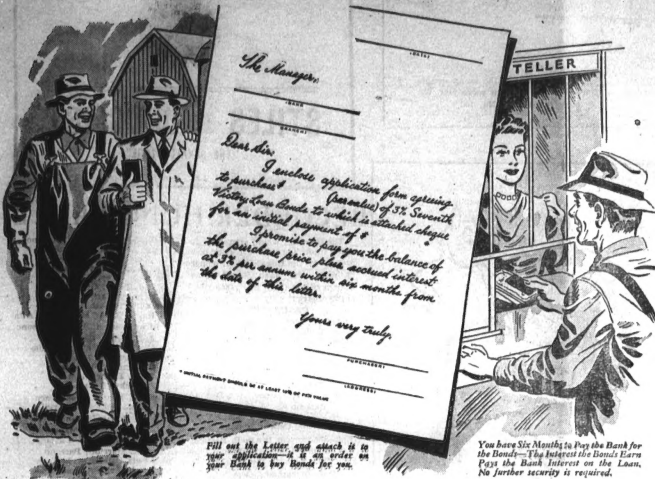 (DATE)
The Manager,
(BANK
BRANCH)
Dear Sir,
I enclose application form agreeing
to purchase $ (par value) of 3% Seventh
Victory Loan Bonds to which is attached cheque
for an initial payment of $ *
I promise to pay you the balance of
the purchase price plus accrued interest
at 3% per annum within six months from
the date of this letter.
Yours very truly,
(PURCHASER)
(ADDRESS)
* INITIAL PAYMENT SHOULD BE AT LEAST 10% OF PAR VALUE
TELLER
Fill out the Letter and attach it to
your application—it is an order on
your Bank to buy Bonds for you.
You have Six Months to Pay the Bank for
the Bonds—The Interest the Bonds Earn
Pays the Bank Interest on the Loan.
No further security is required.